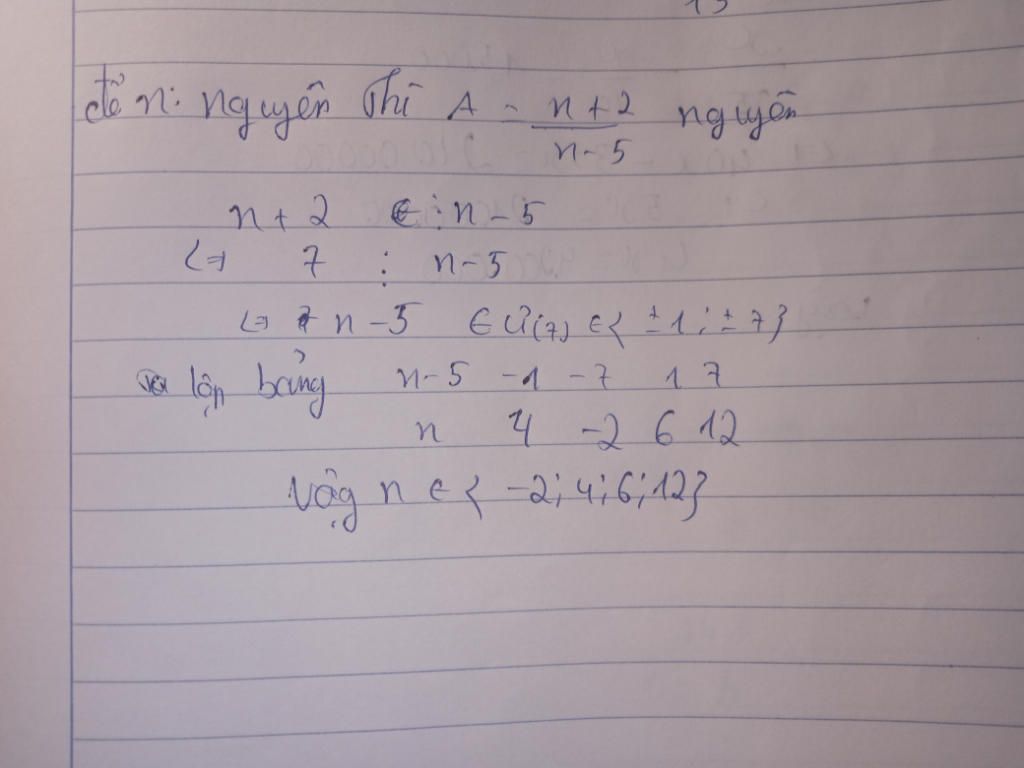 13
để n: nguyên thì A - n + 2 / n - 5 nguyên
n + 2 ⋮ n - 5
<=> 7 ⋮ n - 5
<=> n - 5 ∈ Ư(7) ∈ { ± 1 ; ± 7 }
lập bảng n - 5 -1 -7 1 7
n 4 -2 6 12
Vậy n ∈ { -2; 4; 6; 12 }